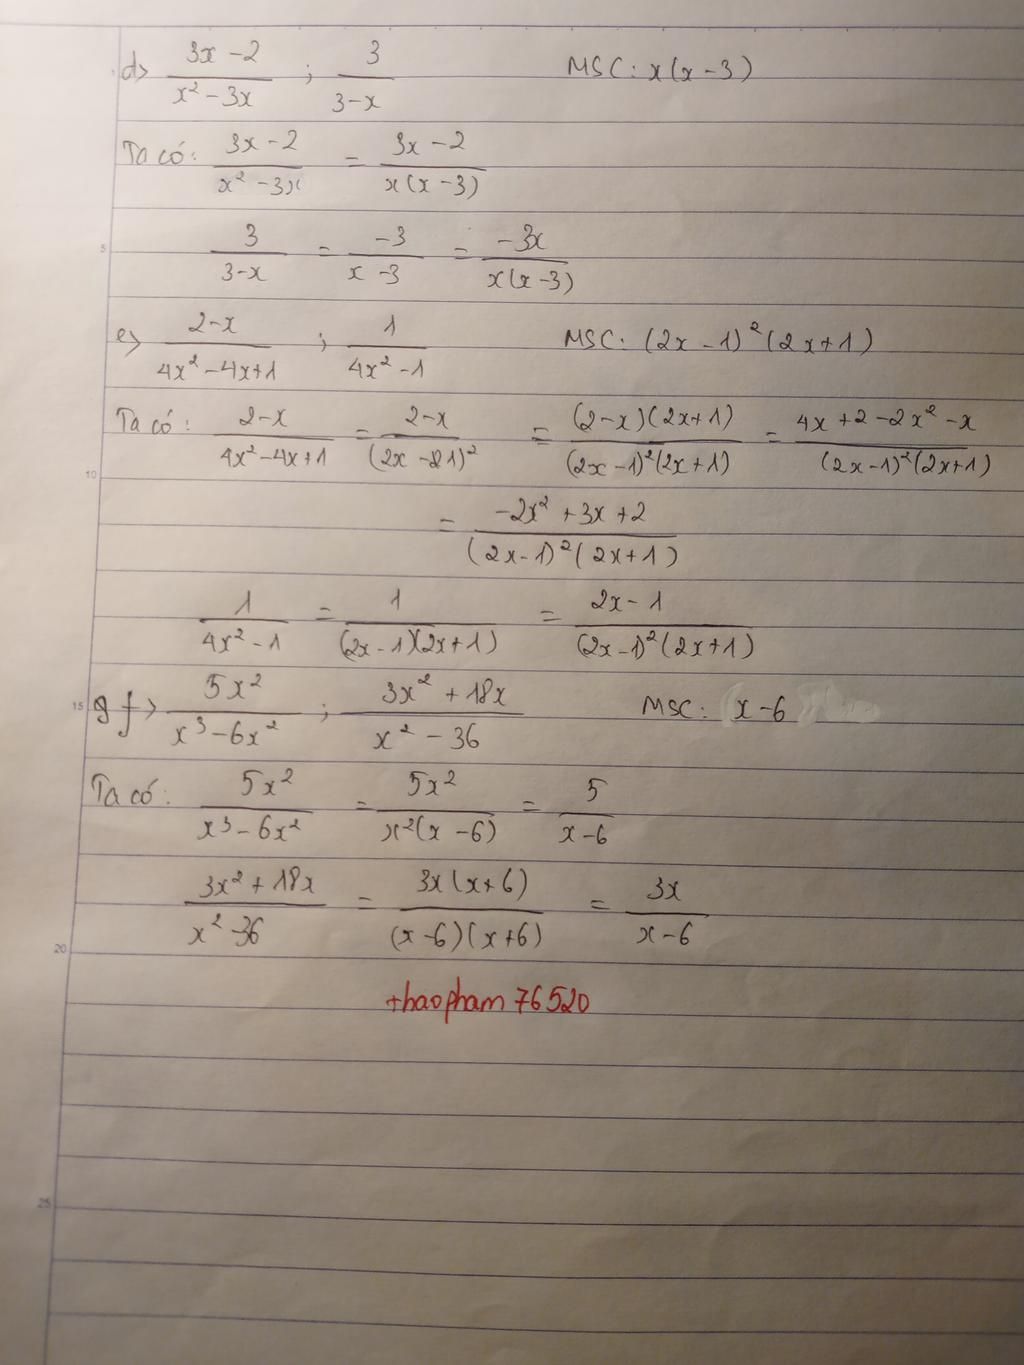 d> (3x - 2)/(x² - 3x) ; 3/(3 - x) MSC: x(x - 3)
Ta có: (3x - 2)/(x² - 3x) = (3x - 2)/(x(x - 3))
5 3/(3 - x) = -3/(x - 3) = -3x/(x(x - 3))
e> (2 - x)/(4x² - 4x + 1) ; 1/(4x² - 1) MSC: (2x - 1)²(2x + 1)
Ta có: (2 - x)/(4x² - 4x + 1) = (2 - x)/(2x - 1)² = ((2 - x)(2x + 1))/((2x - 1)²(2x + 1)) = (4x + 2 - 2x² - x)/((2x - 1)²(2x + 1))
10
= (-2x² + 3x + 2)/((2x - 1)²(2x + 1))
1/(4x² - 1) = 1/((2x - 1)(2x + 1)) = (2x - 1)/((2x - 1)²(2x + 1))
15 f> 5x²/(x³ - 6x²) ; (3x² + 18x)/(x² - 36) MSC: x - 6
Ta có: 5x²/(x³ - 6x²) = 5x²/(x²(x - 6)) = 5/(x - 6)
(3x² + 18x)/(x² - 36) = (3x(x + 6))/((x - 6)(x + 6)) = 3x/(x - 6)
20
thaopham76520
25